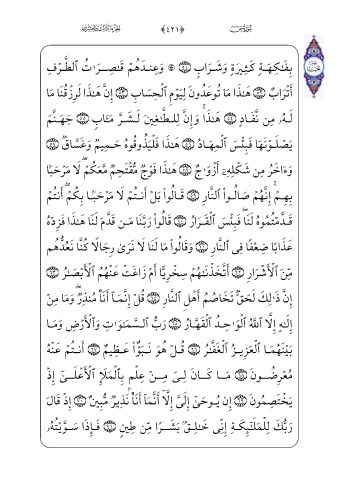 سورة ص ﴿٤٢١﴾ الجزء الثالث والعشرون
بِفَاكِهَةٍ كَثِيرَةٍ وَشَرَابٍ ۞ وَعِندَهُمْ قَاصِرَاتُ الطَّرْفِ
أَتْرَابٌ هَٰذَا مَا تُوعَدُونَ لِيَوْمِ الْحِسَابِ إِنَّ هَٰذَا لَرِزْقُنَا مَا
لَهُ مِن نَّفَادٍ هَٰذَا ۚ وَإِنَّ لِلطَّاغِينَ لَشَرَّ مَآبٍ جَهَنَّمَ
يَصْلَوْنَهَا فَبِئْسَ الْمِهَادُ هَٰذَا فَلْيَذُوقُوهُ حَمِيمٌ وَغَسَّاقٌ
وَءَاخَرُ مِن شَكْلِهِ أَزْوَاجٌ هَٰذَا فَوْجٌ مُّقْتَحِمٌ مَّعَكُمْ ۖ لَا مَرْحَبًا
بِهِمْ ۚ إِنَّهُمْ صَالُوا النَّارِ قَالُوا بَلْ أَنتُمْ لَا مَرْحَبًا بِكُمْ ۖ أَنتُمْ
قَدَّمْتُمُوهُ لَنَا ۖ فَبِئْسَ الْقَرَارُ قَالُوا رَبَّنَا مَن قَدَّمَ لَنَا هَٰذَا فَزِدْهُ
عَذَابًا ضِعْفًا فِي النَّارِ وَقَالُوا مَا لَنَا لَا نَرَىٰ رِجَالًا كُنَّا نَعُدُّهُم
مِّنَ الْأَشْرَارِ أَتَّخَذْنَاهُمْ سِخْرِيًّا أَمْ زَاغَتْ عَنْهُمُ الْأَبْصَارُ
إِنَّ ذَٰلِكَ لَحَقٌّ تَخَاصُمُ أَهْلِ النَّارِ قُلْ إِنَّمَا أَنَا مُنذِرٌ ۖ وَمَا مِنْ
إِلَٰهٍ إِلَّا اللَّهُ الْوَاحِدُ الْقَهَّارُ رَبُّ السَّمَاوَاتِ وَالْأَرْضِ وَمَا
بَيْنَهُمَا الْعَزِيزُ الْغَفَّارُ قُلْ هُوَ نَبَؤٌا عَظِيمٌ أَنتُمْ عَنْهُ
مُعْرِضُونَ مَا كَانَ لِيَ مِنْ عِلْمٍ بِالْمَلَإِ الْأَعْلَىٰ إِذْ
يَخْتَصِمُونَ إِن يُوحَىٰ إِلَيَّ إِلَّا أَنَّمَا أَنَا نَذِيرٌ مُّبِينٌ إِذْ قَالَ
رَبُّكَ لِلْمَلَائِكَةِ إِنِّي خَالِقٌ بَشَرًا مِّن طِينٍ فَإِذَا سَوَّيْتُهُ